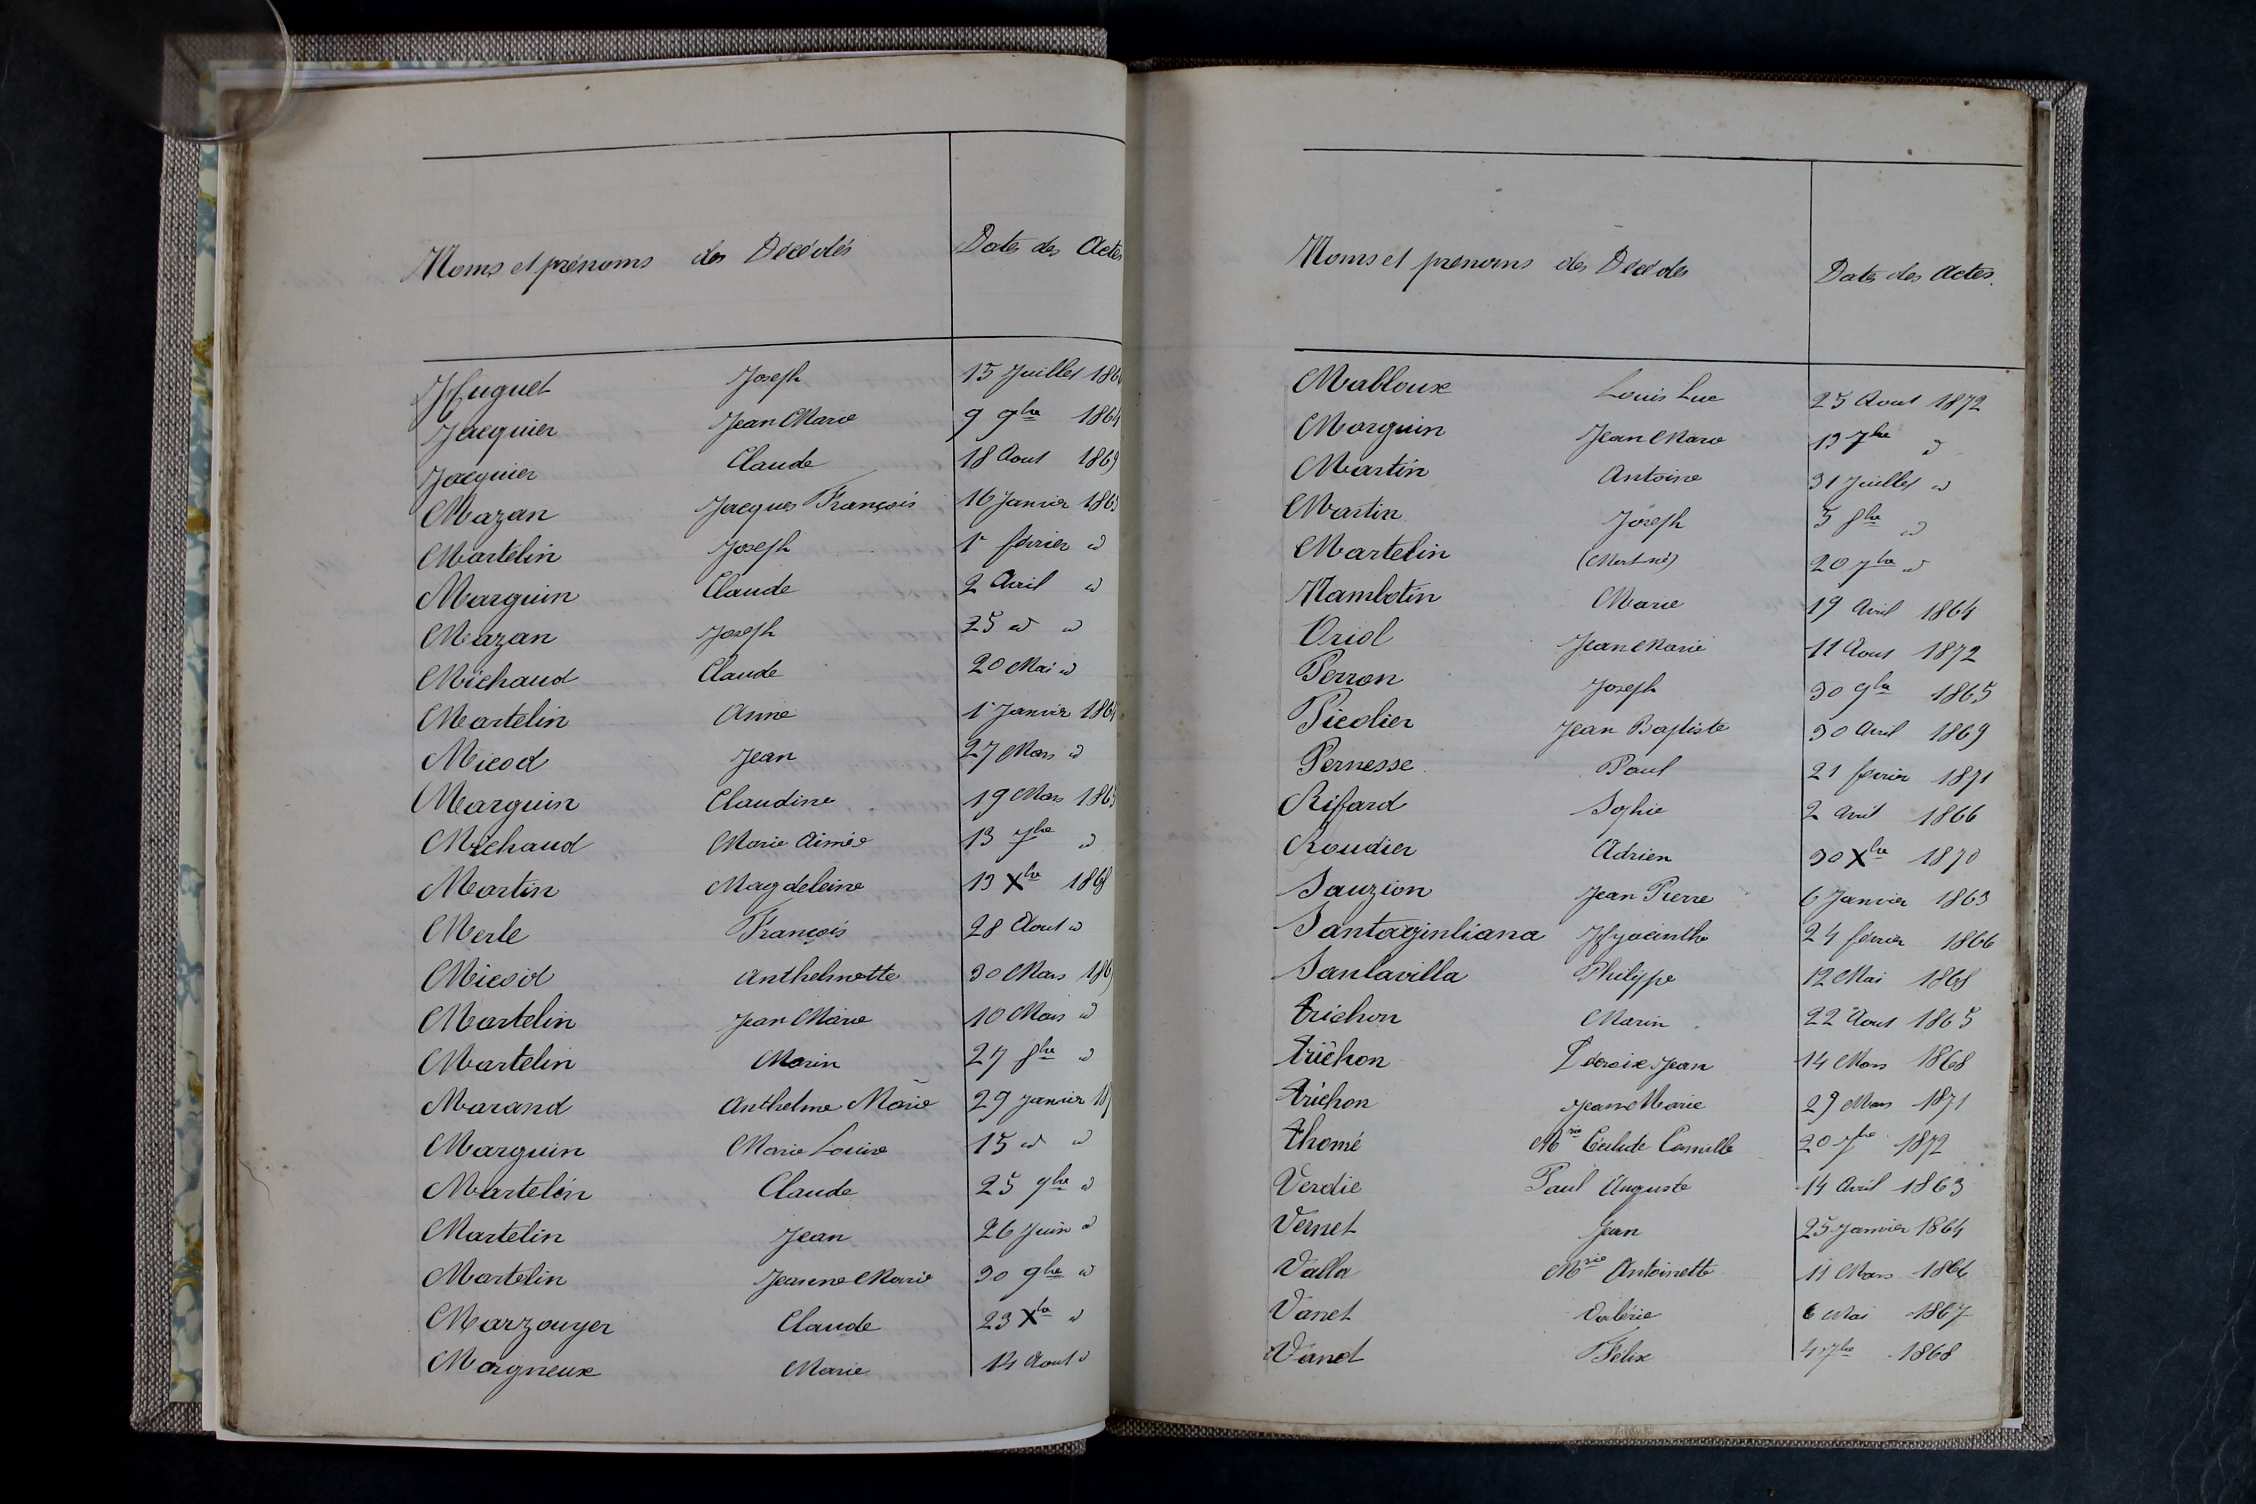 Noms et prénoms des Décédés Dates des Actes
Huguet Joseph 15 Juillet
Jacquier Jean Marie 9 9bre 1864
Jacquier Claude 18 Aout 1869
Mazan Jacques François 16 Janvier
Martelin Joseph 1r février d
Marguin Claude 2 Avril d
Mazan Joseph 25 d d
Michaud Claude 20 Mai d
Martelin Anne 1r Janvier
Micod Jean 27 Mars d
Marguin Claudine 19 Mars
Michaud Marie Aimée 13 7bre d
Martin Magdeleine 13 Xbre 1868
Merle François 28 Aout d
Micod Anthelmette 30 Mars
Martelin Jean Marie 10 Mars d
Martelin Marin 27 8bre d
Marand Anthelme Marie 29 Janvier
Marguin Marie Louise 15 d d
Martelin Claude 25 9bre d
Martelin Jean 26 Juin d
Martelin Jeanne Marie 30 9bre d
Marzouyer Claude 23 Xbre d
Margneux Marie 14 Aout d
Noms et prenoms des Décédés Dates des Actes.
Mabloux Louis Luc 25 Aout 1872
Marguin Jean Marie 13 7bre d
Martin Antoine 31 Juillet d
Martin Joseph 5 8bre d
Martelin (Mort-né) 20 7bre d
Nambotin Marie 19 Avril 1864
Oriol Jean Marie 11 Aout 1872
Perron Joseph 30 9bre 1865
Picolier Jean Baptiste 30 Avril 1869
Pernesse Paul 21 février 1871
Rifard Sophie 2 Avril 1866
Roudier Adrien 30 Xbre 1870
Sauzion Jean Pierre 6 Janvier 1863
Santaginliana Hyacinthe 24 février 1866
Santavilla Philippe 12 Mai 1868
trichon Marin 22 Aout 1865
trichon Jean 14 Mars 1868
trichon Jean Marie 29 Mars 1871
thomé Mrie Camille 20 7bre 1872
Verdie Paul Auguste 14 Avril 1863
Vernet Jean 25 Janvier 1864
Valla Mrie Antoinette 11 Mars 1866
Vanet Valérie 6 Mai 1867
Vanet Félix 4 7bre 1868